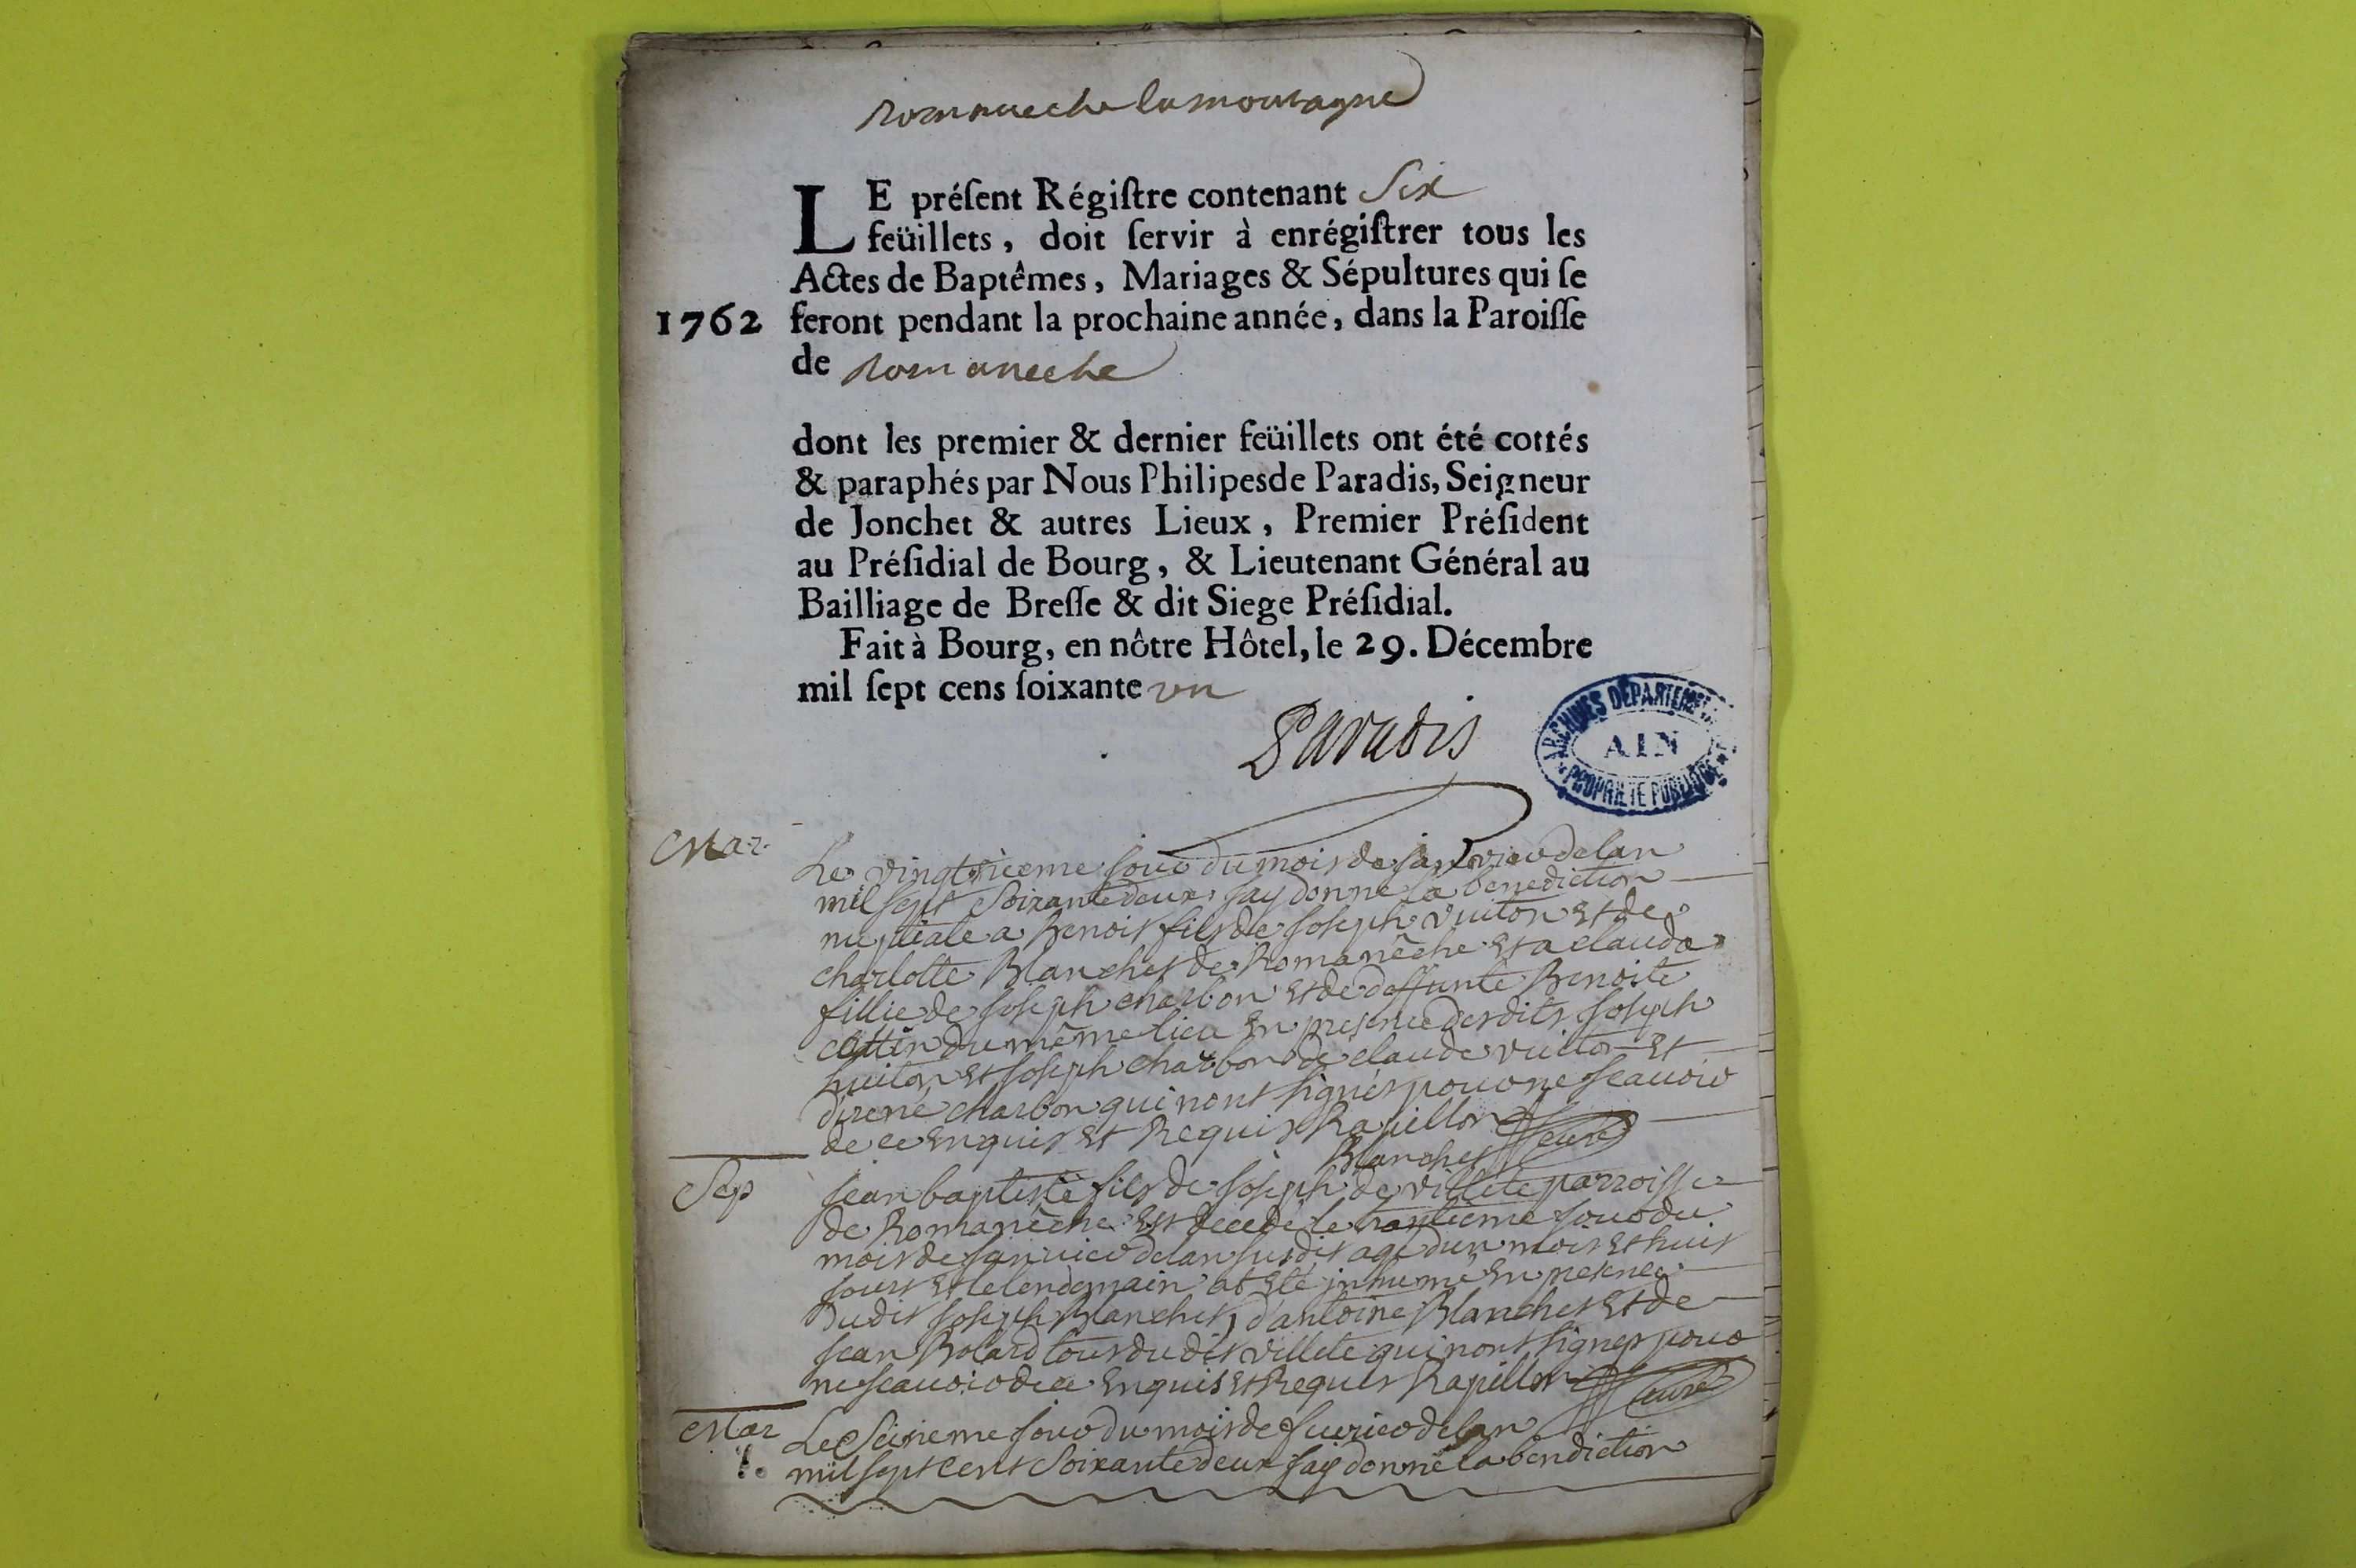 Romaneche lamontagne
LE préſent Régiſtre contenant Six
feüillets, doit ſervir à enrégiſtrer tous les
Actes de Baptêmes, Mariages & Sépultures qui ſe
1762 feront pendant la prochaine année, dans la Paroiſſe
de Romaneche
dont les premier & dernier feüillets ont été cottés
& paraphés par Nous Philipesde Paradis, Seigneur
de Jonchet & autres Lieux, Premier Préſident
au Préſidial de Bourg, & Lieutenant Général au
Bailliage de Breſſe & dit Siege Préſidial.
Fait à Bourg, en nôtre Hôtel, le 29. Décembre
mil ſept cens ſoixante un
Paradis
ARCHIVES DEPARTEMENT
AIN
PROPRIETE PUBLIQUE
Mar
Le jour du mois de janvier de lan
mil sept Soixante deux jay donné la benediction
nuptiale a Benoit fils de Joseph vuiton Et de
charlotte Blanchet de Romanêche Et a clauda
fillie de Joseph charbon Et de deffunte Benoite
du même lieu En presence desdits Joseph
vuiton Et Joseph charbon de claude vuiton Et
charbon qui nont signés pour ne scauoir
de ce Enquis Et Requis Rapillon curé
Blanchet
Sep Jean baptiste fils de Joseph de villete parroisse
de Romanêche Est decedé le jour du
mois de januier de lan susdit agé dun mois Et huit
jours Et le lendemain at Eté inhumé En presence
dudit Joseph Blanchet, dantoine Blanchet Et de
Jean Bolard tous du dit villete qui nont signés pour
ne scauoir de ce Enquis Et Requis Rapillon curé
Mar Le Seisieme jour du mois de feurier de lan
mil sept cent Soixante deux jay donné la bendiction